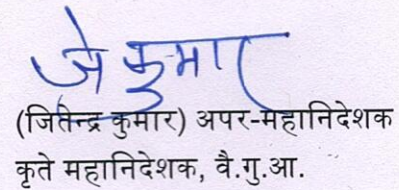 जे कुमार
(जितेन्द्र कुमार) अपर-महानिदेशक
कृते महानिदेशक, वै.गु.आ.